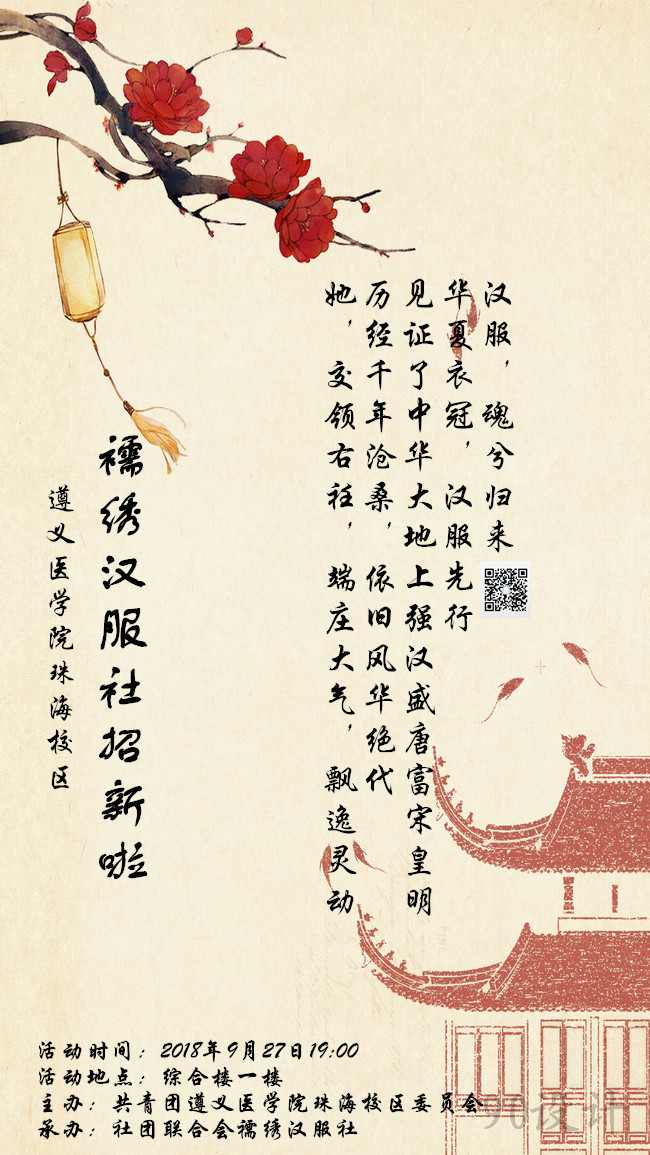 汉服，魂兮归来
华夏衣冠，汉服先行
见证了中华大地上强汉盛唐富宋皇明
历经千年沧桑，依旧风华绝代
她，交领右衽，端庄大气，飘逸灵动
襦绣汉服社招新啦
遵义医学院珠海校区
活动时间：2018年9月27日19:00
活动地点：综合楼一楼
主办：共青团遵义医学院珠海校区委员会
承办：社团联合会襦绣汉服社
90设计